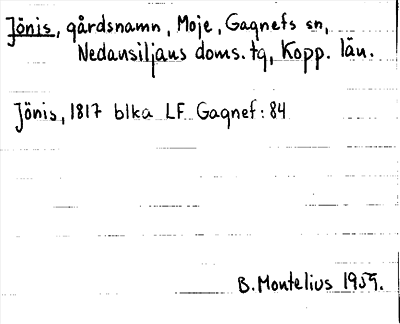 Jönis, gårdsnamn, Moje, Gagnefs sn,
Nedansiljans doms. tg, Kopp. län.
Jönis, 1817 blka LF Gagnef: 84
B. Montelius 1959.